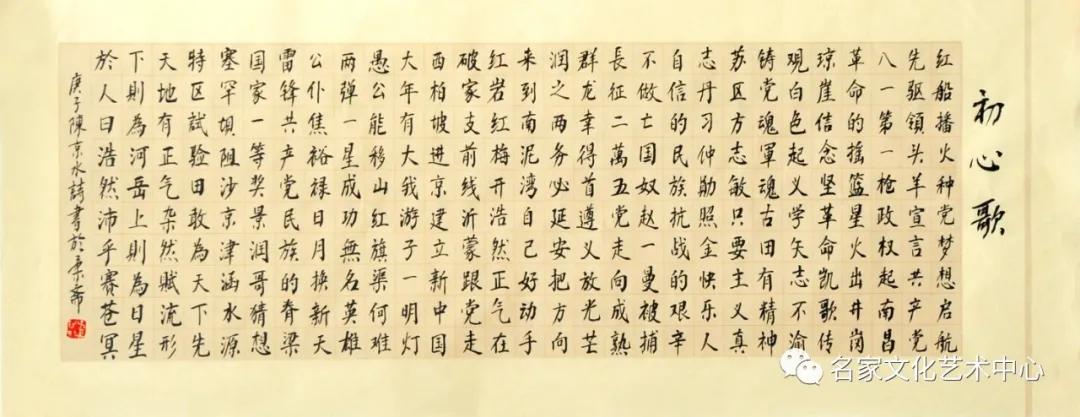 初心歌
红船播火种党梦想启航
先驱領头羊宣言共产党
八一第一枪政权起南昌
革命的摇篮星火出井岗
琼崖信念坚革命凯歌传
观白色起义学矢志不渝
铸党魂軍魂古田有精神
苏区方志敏只要主义真
志丹习仲勋照金快乐人
自信的民族抗战的艰辛
不做亡国奴赵一曼被捕
長征二萬五党走向成熟
群龙幸得首遵义放光芒
润之两务必延安把方向
来到南泥湾自己好动手
红岩红梅开浩然正气在
破家支前线沂蒙跟党走
西柏坡進京建立新中国
大年有大我游子一明灯
愚公能移山红旗渠何难
两弹一星成功無名英雄
公仆焦裕禄日月换新天
雷锋共产党民族的脊梁
国家一等奖景润哥猜想
塞罕坝阻沙京津涵水源
特区試验田敢為天下先
天地有正气杂然赋流形
下則為河岳上則為日星
於人曰浩然沛乎塞苍冥
庚子陳京水詩書於
名家文化艺术中心